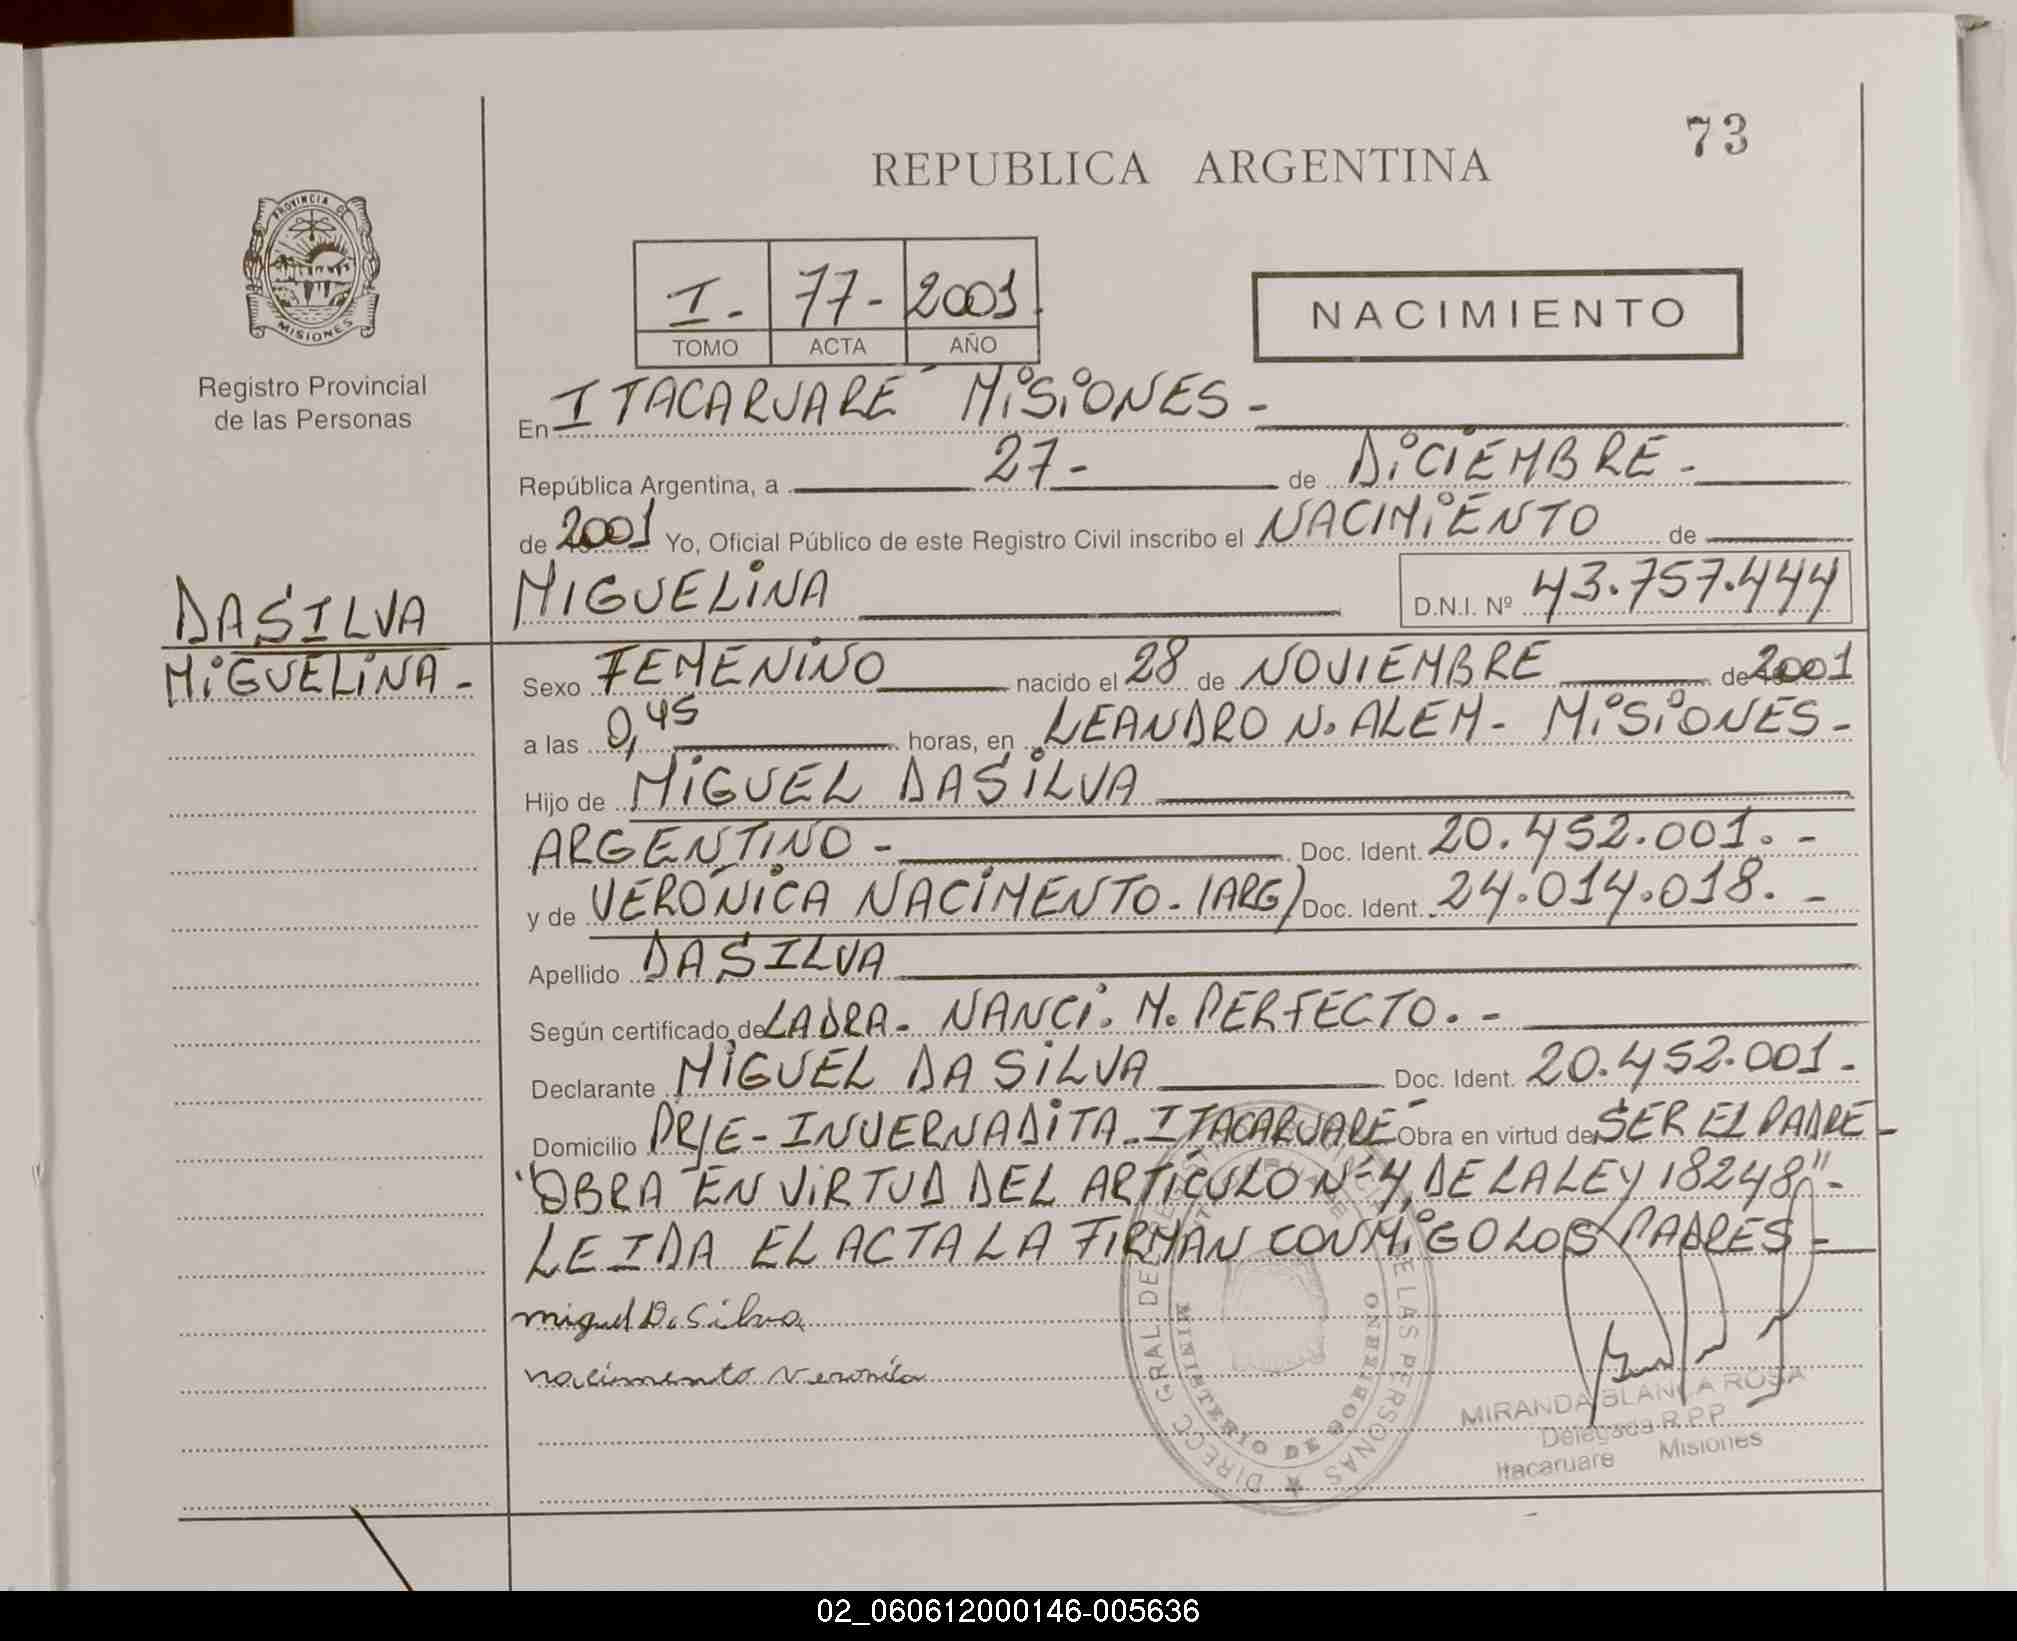 73
REPUBLICA ARGENTINA
PROVINCIA DE
MISIONES
Registro Provincial
de las Personas
I. 77- 2001.
TOMO ACTA AÑO
NACIMIENTO
En ITACARUARE MISIONES-
República Argentina, a 27- de DICIEMBRE-
de 2001 Yo, Oficial Público de este Registro Civil inscribo el NACIMIENTO de
MIGUELINA D.N.I. Nº 43.757.444
DASILVA
MIGUELINA-
Sexo FEMENINO nacido el 28 de NOVIEMBRE de 2001
a las 0,45 horas, en LEANDRO N. ALEM- MISIONES-
Hijo de MIGUEL DASILVA
ARGENTINO- Doc. Ident. 20.452.001.-
y de VERÓNICA NACIMENTO-(ARG) Doc. Ident. 24.014.018.-
Apellido DASILVA
Según certificado de LADRA- NANCI. M. PERFECTO.-
Declarante MIGUEL DA SILVA Doc. Ident. 20.452.001-
Domicilio PRJE-INVERNADITA-ITACARUARÉ Obra en virtud de SER EL PADRE-
"OBRA EN VIRTUD DEL ARTÍCULO Nº 4, DE LA LEY 18248"-
LEIDA EL ACTA LA FIRMAN CONMIGO LOS PADRES-
miguel Da Silva
nacimento Veronica
DIRECC GRAL DE LAS PERSONAS
MINISTERIO DE GOBIERNO
MIRANDA BLANCA ROSA
Delegada R.P.P.
Itacaruare Misiones
02_060612000146-005636